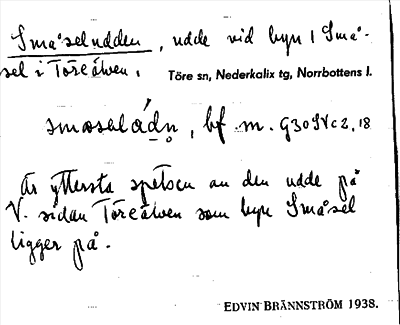 Småseludden, udde vid byn i Små-
sel i Töreälven.
Töre sn, Nederkalix tg, Norrbottens l.
bf. m. G30SVc2,18
Är yttersta spetsen av den udde på
V. sidan Töreälven som byn Småsel
ligger på.
EDVIN BRÄNNSTRÖM 1938.